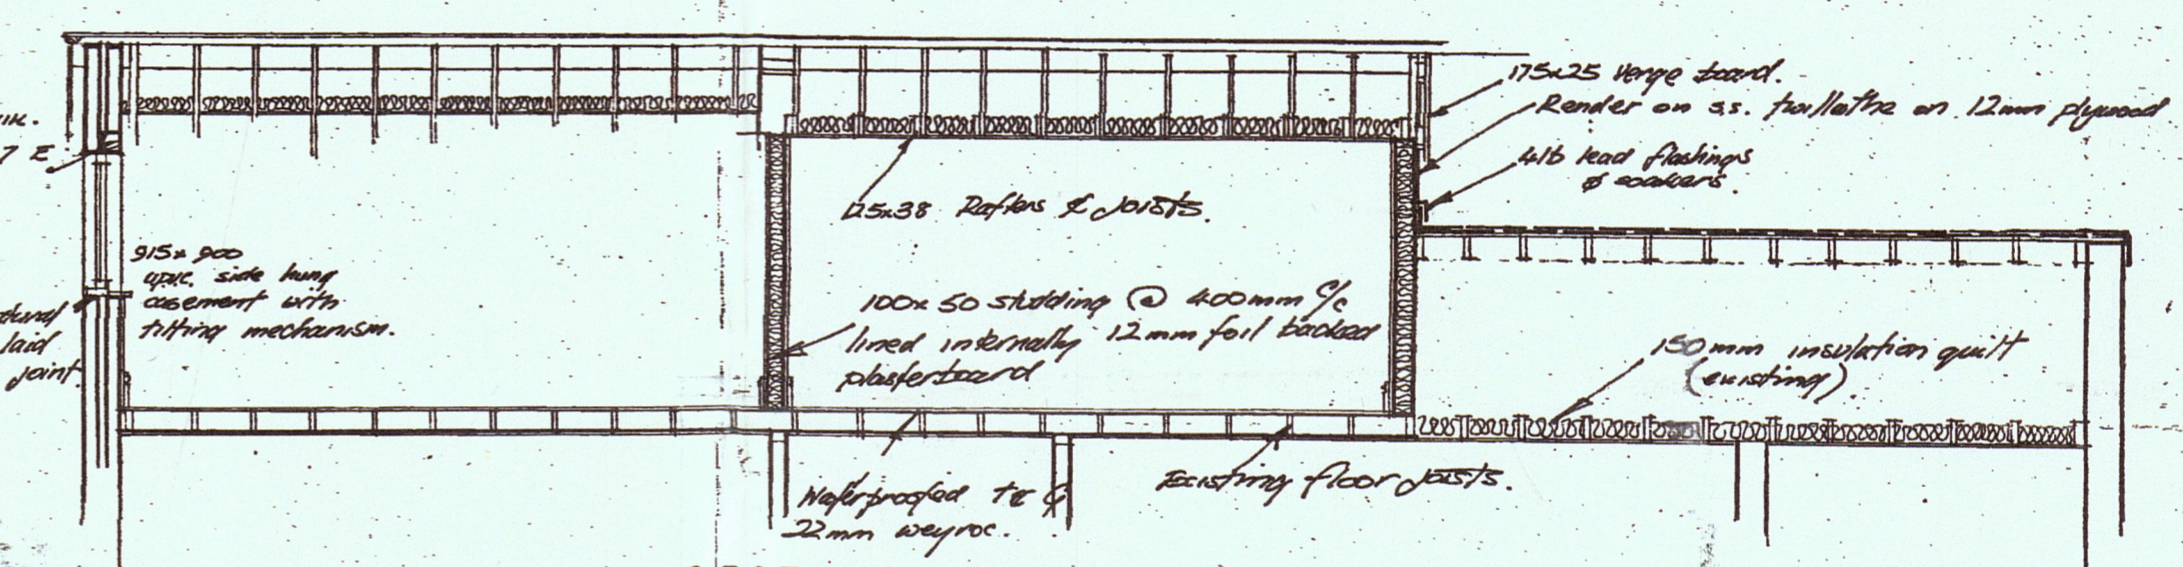 175x25 Verge board.
Render on s.s. on 12mm plywood
4lb lead flashings
& soakers.
7 E
125x38 Rafters & Joists.
915x900
upvc. side hung
casement with
tilting mechanism.
laid
joint.
100x50 studding @ 400mm c/c
lined internally 12mm foil backed
plasterboard
150mm insulation quilt
(existing)
Waterproofed T & G
22mm weyroc.
Existing floor joists.